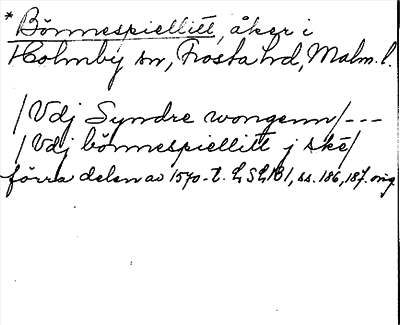 * Bönnespiellitt, åker i
Holmby sn, Frosta hd, Malm. l.
/Vdj Syndre wongenn/---
/Vdj bönnespiellitt j ske/
förra delen av 1570-t. LSLB1, ss. 186, 187. orig.